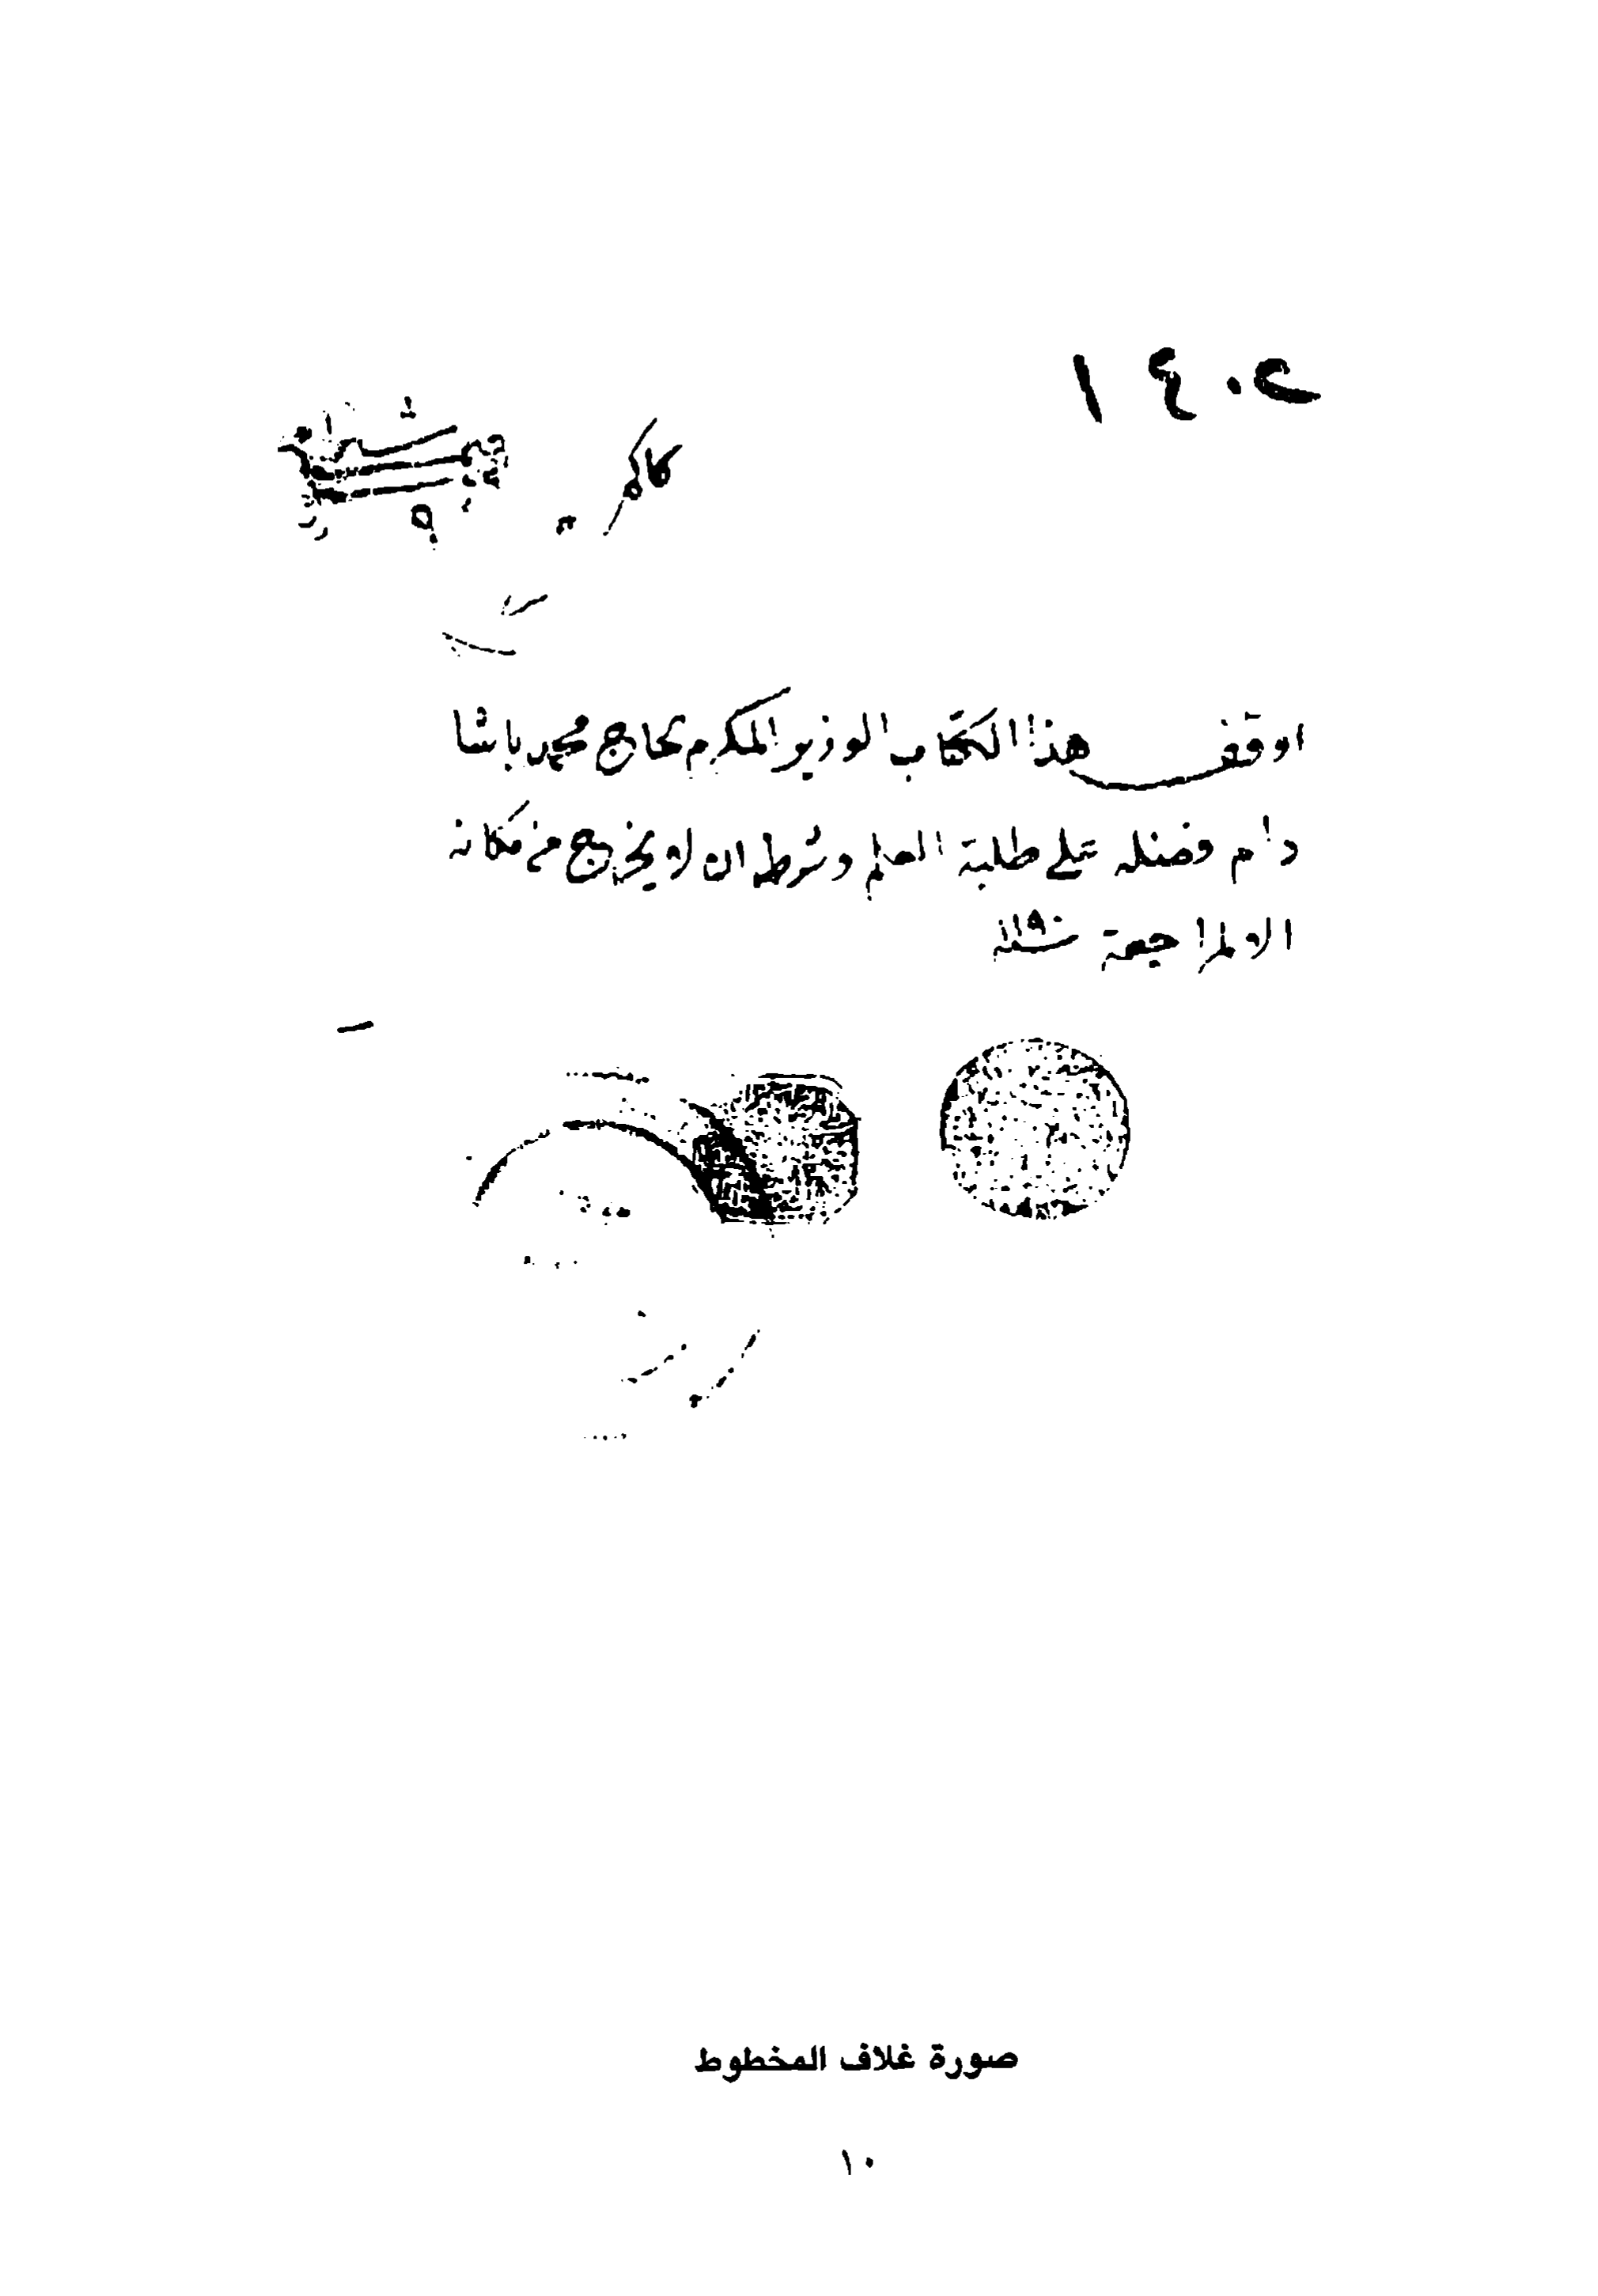 ١٤٠٢
اوقف هذا الكتاب الوزير المكرم الحاج محمد باشا
دام فضله على طلبة العلم وشرط ان لا يخرج من مكانه
الا لمراجعة سنة ١١٩٠
صورة غلاف المخطوط
١٠